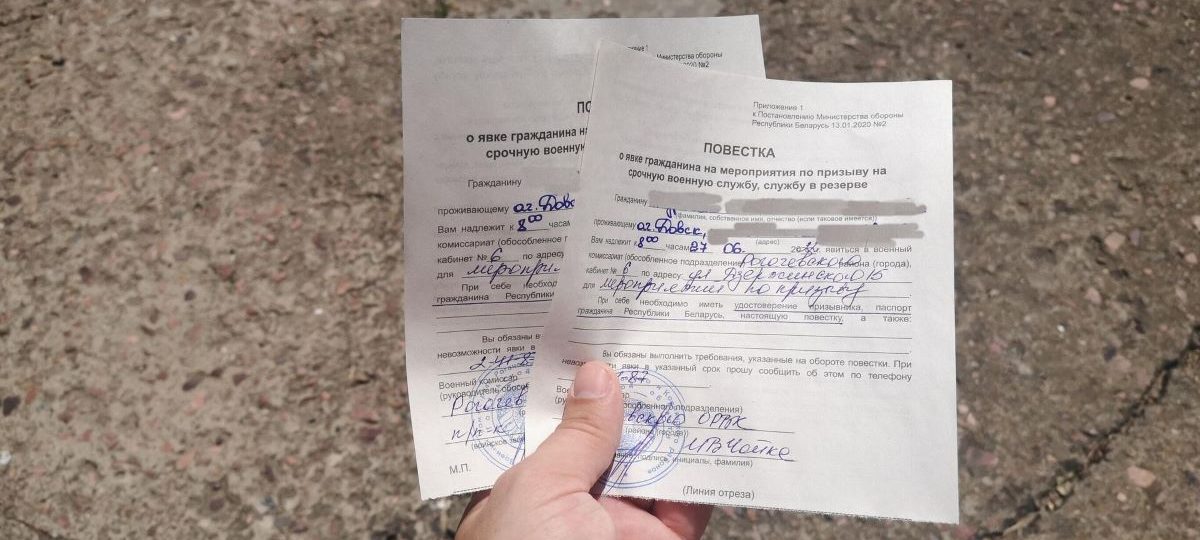 Министерства обороны
2020 №2
о явке гражданина на
срочную военну
Гражданину
проживающему аг. Довс
Вам надлежит к 8⁰⁰ часам
комиссариат (обособленное п
кабинет № 6 по адресу
для мероприя
При себе необход
гражданина Республики
Вы обязаны в
невозможности явки в
Военный комиссар
(руководитель обособ
Рогачев
п/п-к
М.П.
Приложение 1
к Постановлению Министерства обороны
Республики Беларусь 13.01.2020 №2
ПОВЕСТКА
о явке гражданина на мероприятия по призыву на
срочную военную службу, службу в резерве
Гражданину
(фамилия, собственное имя, отчество (если таковое имеется))
проживающему аг. Довск,
(адрес)
Вам надлежит к 8⁰⁰ часам 27 06. явиться в военный
комиссариат (обособленное подразделение) Рогачевского района (города),
кабинет № 6 по адресу: ул Дзержинского 15
для мероприятия по призыву
При себе необходимо иметь удостоверение призывника, паспорт
гражданина Республики Беларусь, настоящую повестку, а также:
Вы обязаны выполнить требования, указанные на обороте повестки. При
невозможности явки в указанный срок прошу сообщить об этом по телефону
87
обособленного подразделения)
вского ОРВК
района (города))
И В Чайка
подпись, инициалы, фамилия)
(Линия отреза)